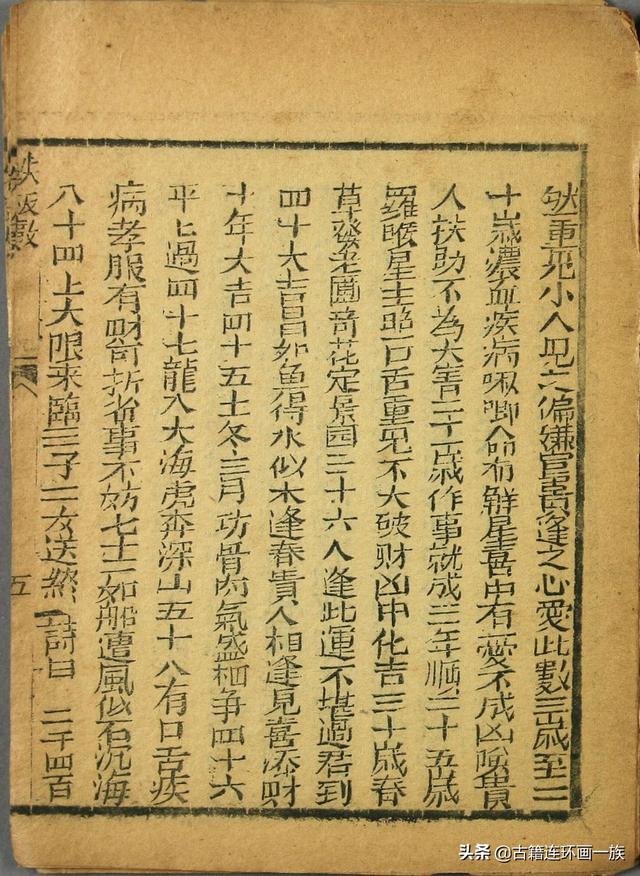 然重見小人見之偏嫌官貴逢之心愛此數三歲至二
十歲濃血疾病啾唧命有觧星喜中有憂不成凶險貴
人扶助不為大害二十一歲作事就成三年順三十五歲
羅睺星主照口舌重見不大破财凶中化吉三十歲春
草發老圃奇花定景园三十六人逢此運不堪過君到
四十大吉昌如魚得水似木逢春貴人相逢見喜添财
十年大吉四十五上冬三月功骨肉氣盛相争四十六
平上過四十七龍入大海虎奔深山五十八有口舌疾
病孝服有财前折省事不妨七十二如船遭風似石沉海
八十四上大限来臨三子二女送終 詩曰 二千四百
鉄板數
五
头条 @古籍连环画一族